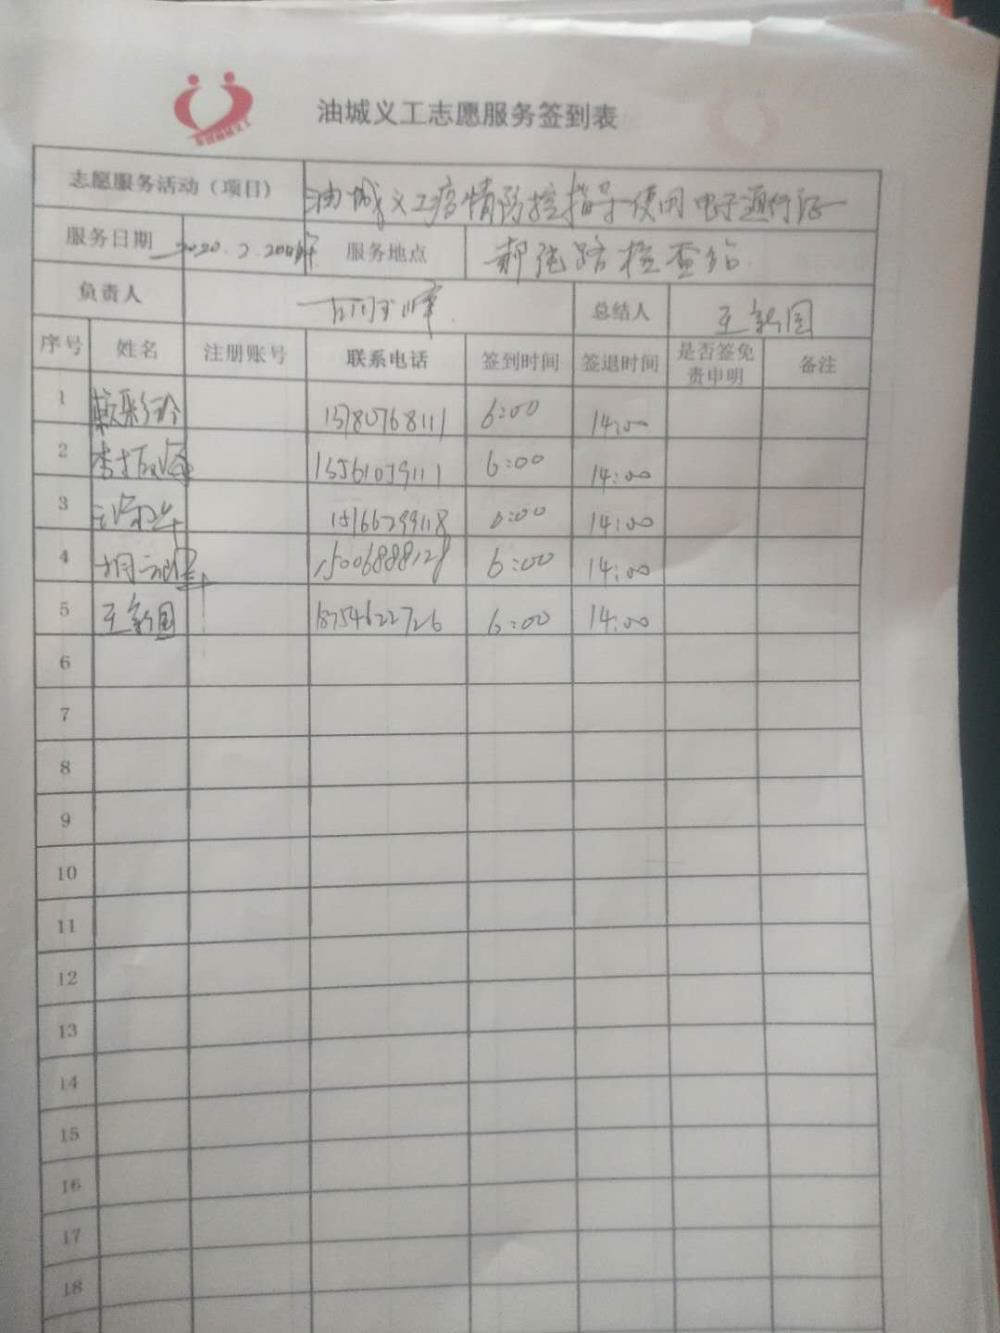 油城义工志愿服务签到表
志愿服务活动（项目） 油城义工疫情防控指导使用电子通行证
服务日期 2020.2. 服务地点 检查站
负责人 总结人 王新国
序号 姓名 注册账号 联系电话 签到时间 签退时间 是否签免责申明 备注
1 13780768111 6:00 14:00
2 13561039111 6:00 14:00
3 15166299118 6:00 14:00
4 15006888128 6:00 14:00
5 王新国 18754622726 6:00 14:00
6
7
8
9
10
11
12
13
14
15
16
17
18